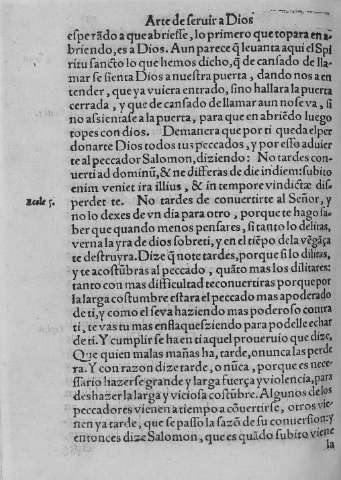 Arte de seruir a Dios
esperãdo a que abriesse, lo primero que topara en a-
briendo, es a Dios. Aun parece q̃ leuanta aqui el Spi
ritu sancto lo que hemos dicho, q̃ de cansado de lla-
mar se sienta Dios a nuestra puerta, dando nos a en
tender, que ya vuiera entrado, sino hallara la puerta
cerrada, y que de cansado de llamar aun no se va, si
no assientase a la puerta, para que en abriẽdo luego
topes con dios. Demanera que por ti queda el per
donarte Dios todos tus peccados, y por esso aduier
te al peccador Salomon, diziendo: No tardes con-
uerti ad dominũ, & ne differas de die in diem: subito
enim veniet ira illius, & in tempore vindictæ dis-
Eccle 5. perdet te. No tardes de conuertirte al Señor, y
no lo dexes de vn dia para otro, porque te hago sa-
ber que quando menos pensares, si tanto lo dilatas,
verna la yra de dios sobre ti, y en el tiẽpo de la vẽgãça
te destruyra. Dize q̃ no te tardes, porque si lo dilatas,
y te acostũbras al peccado, quãto mas los dilatares:
tanto con mas difficultad te conuertiras porque por
la larga costumbre estara el peccado mas apoderado
de ti, y como el se va haziendo mas poderoso contra
ti, te vas tu mas enflaqueziendo para podelle echar
de ti. Y cumplir se ha en ti aquel prouerbio que dize,
Que quien malas mañas ha, tarde, o nunca las perde
ra. Y con razon dize tarde, o nũca, porque es nece-
ssario hazerse grande y larga fuerça y violencia, para
deshazer la larga y viciosa costũbre. Algunos de los
peccadores vienen a tiempo a cõuertirse, otros vie-
nen ya tarde, que se passo la sazõ de su conuersion: y
entonces dize Salomon, que es quãdo subito viene
la